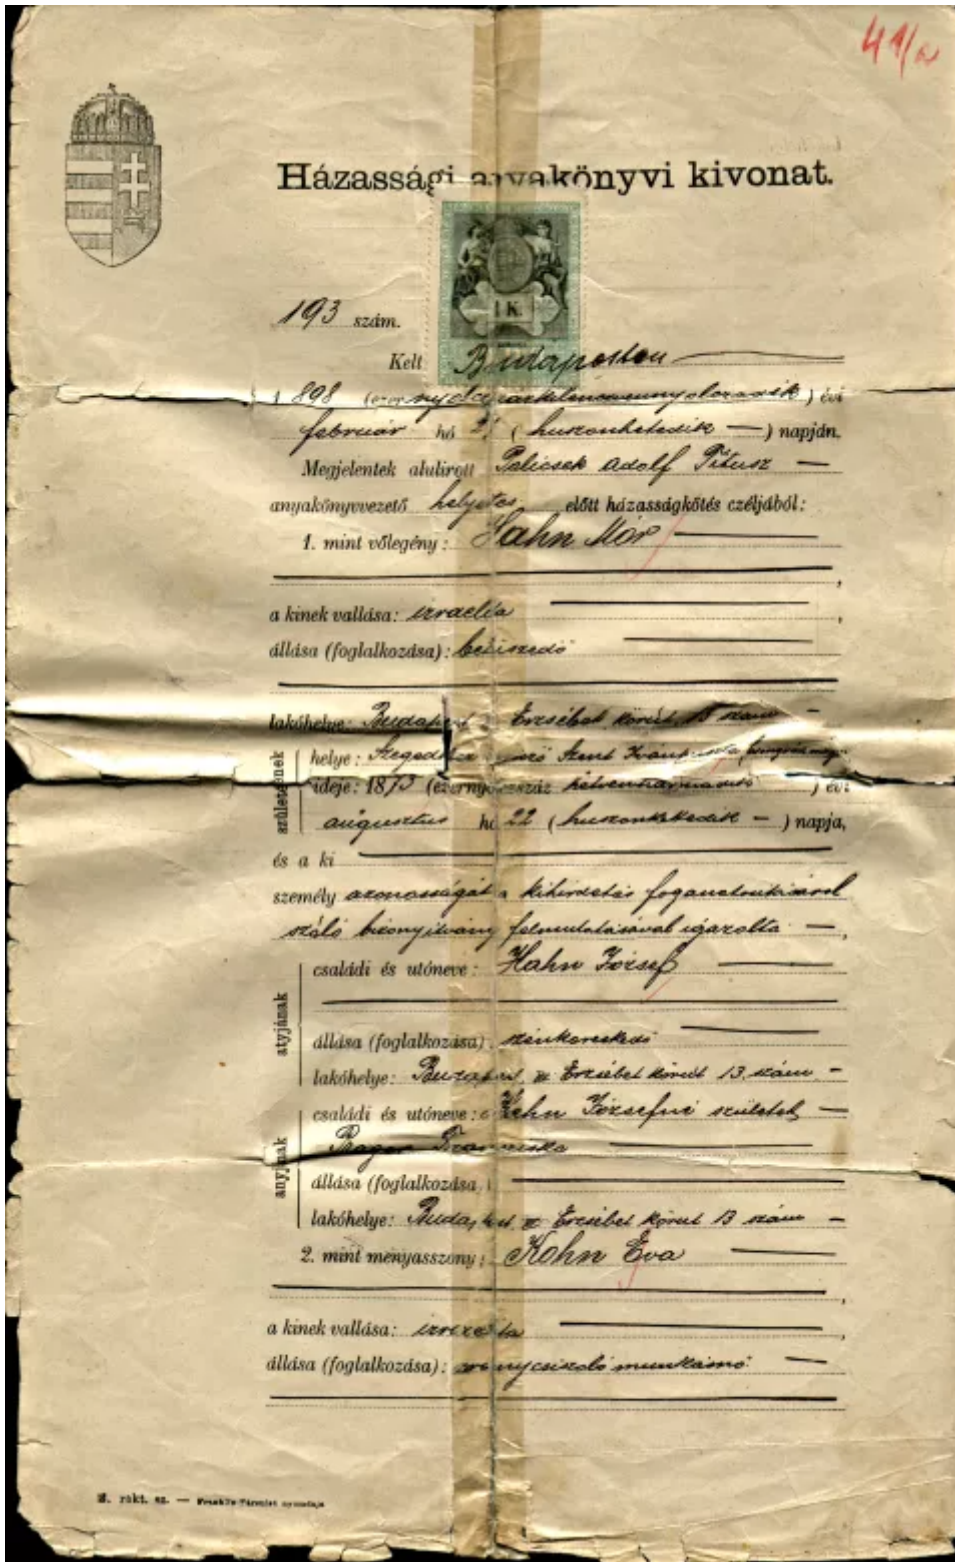 41/a
Házassági anyakönyvi kivonat.
1 K.
193 szám.
Kelt Budapesten
1898 (ezernyolczszázkilenczvennyolczadik) évi
február hó 27 (huszonhetedik —) napján.
Megjelentek alulirott Adolf Titusz —
anyakönyvvezető helyettes előtt házasságkötés czéljából:
1. mint vőlegény: Hahn Mór
a kinek vallása: izraelita
állása (foglalkozása):
lakóhelye: Budapest Erzsébet körút 13 szám —
születésének
helye: Szent Iván
ideje: 1873 (ezernyolczszáz hetvenharmadik) évi
augusztus hó 22 (huszonkettedik —) napja,
és a ki
személy azonosságát a kihirdetés foganatosításáról
szóló bizonyítvány felmutatásával igazolta —,
atyjának
családi és utóneve: Hahn József
állása (foglalkozása): szénkereskedő
lakóhelye: Budapest, Erzsébet körút 13. szám —
anyjának
családi és utóneve: Hahn Józsefné született —
Prager Franciska
állása (foglalkozása)
lakóhelye: Budapest Erzsébet körút 13 szám —
2. mint menyasszony: Kohn Éva
a kinek vallása: izraelita
állása (foglalkozása): aranycsiszoló munkásnő —
r. rakt. sz. — Franklin-Társulat nyomdája